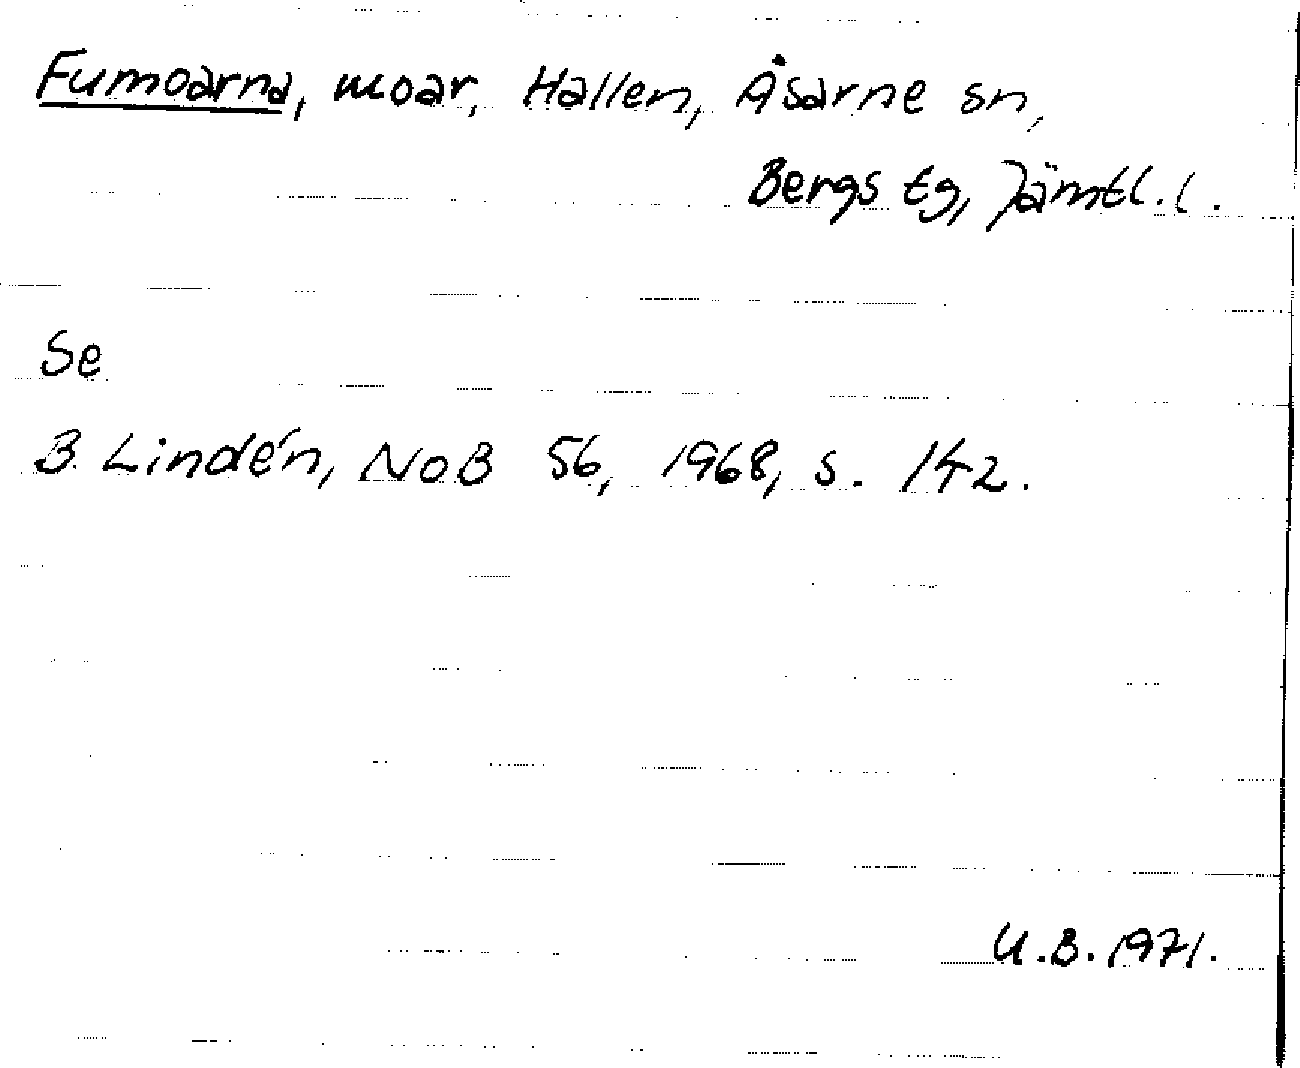 Fumoarna, moar, Hallen, Åsarne sn,
Bergs tg, Jämtl. l.
Se
B. Lindén, NoB 56, 1968, s. 142.
U.B. 1971.